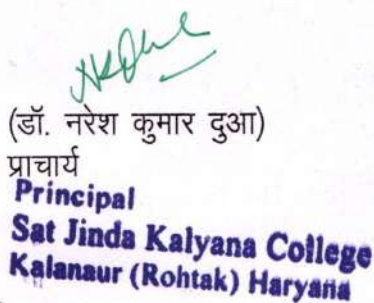 (डॉ. नरेश कुमार दुआ)
प्राचार्य
Principal
Sat Jinda Kalyana College
Kalanaur (Rohtak) Haryana